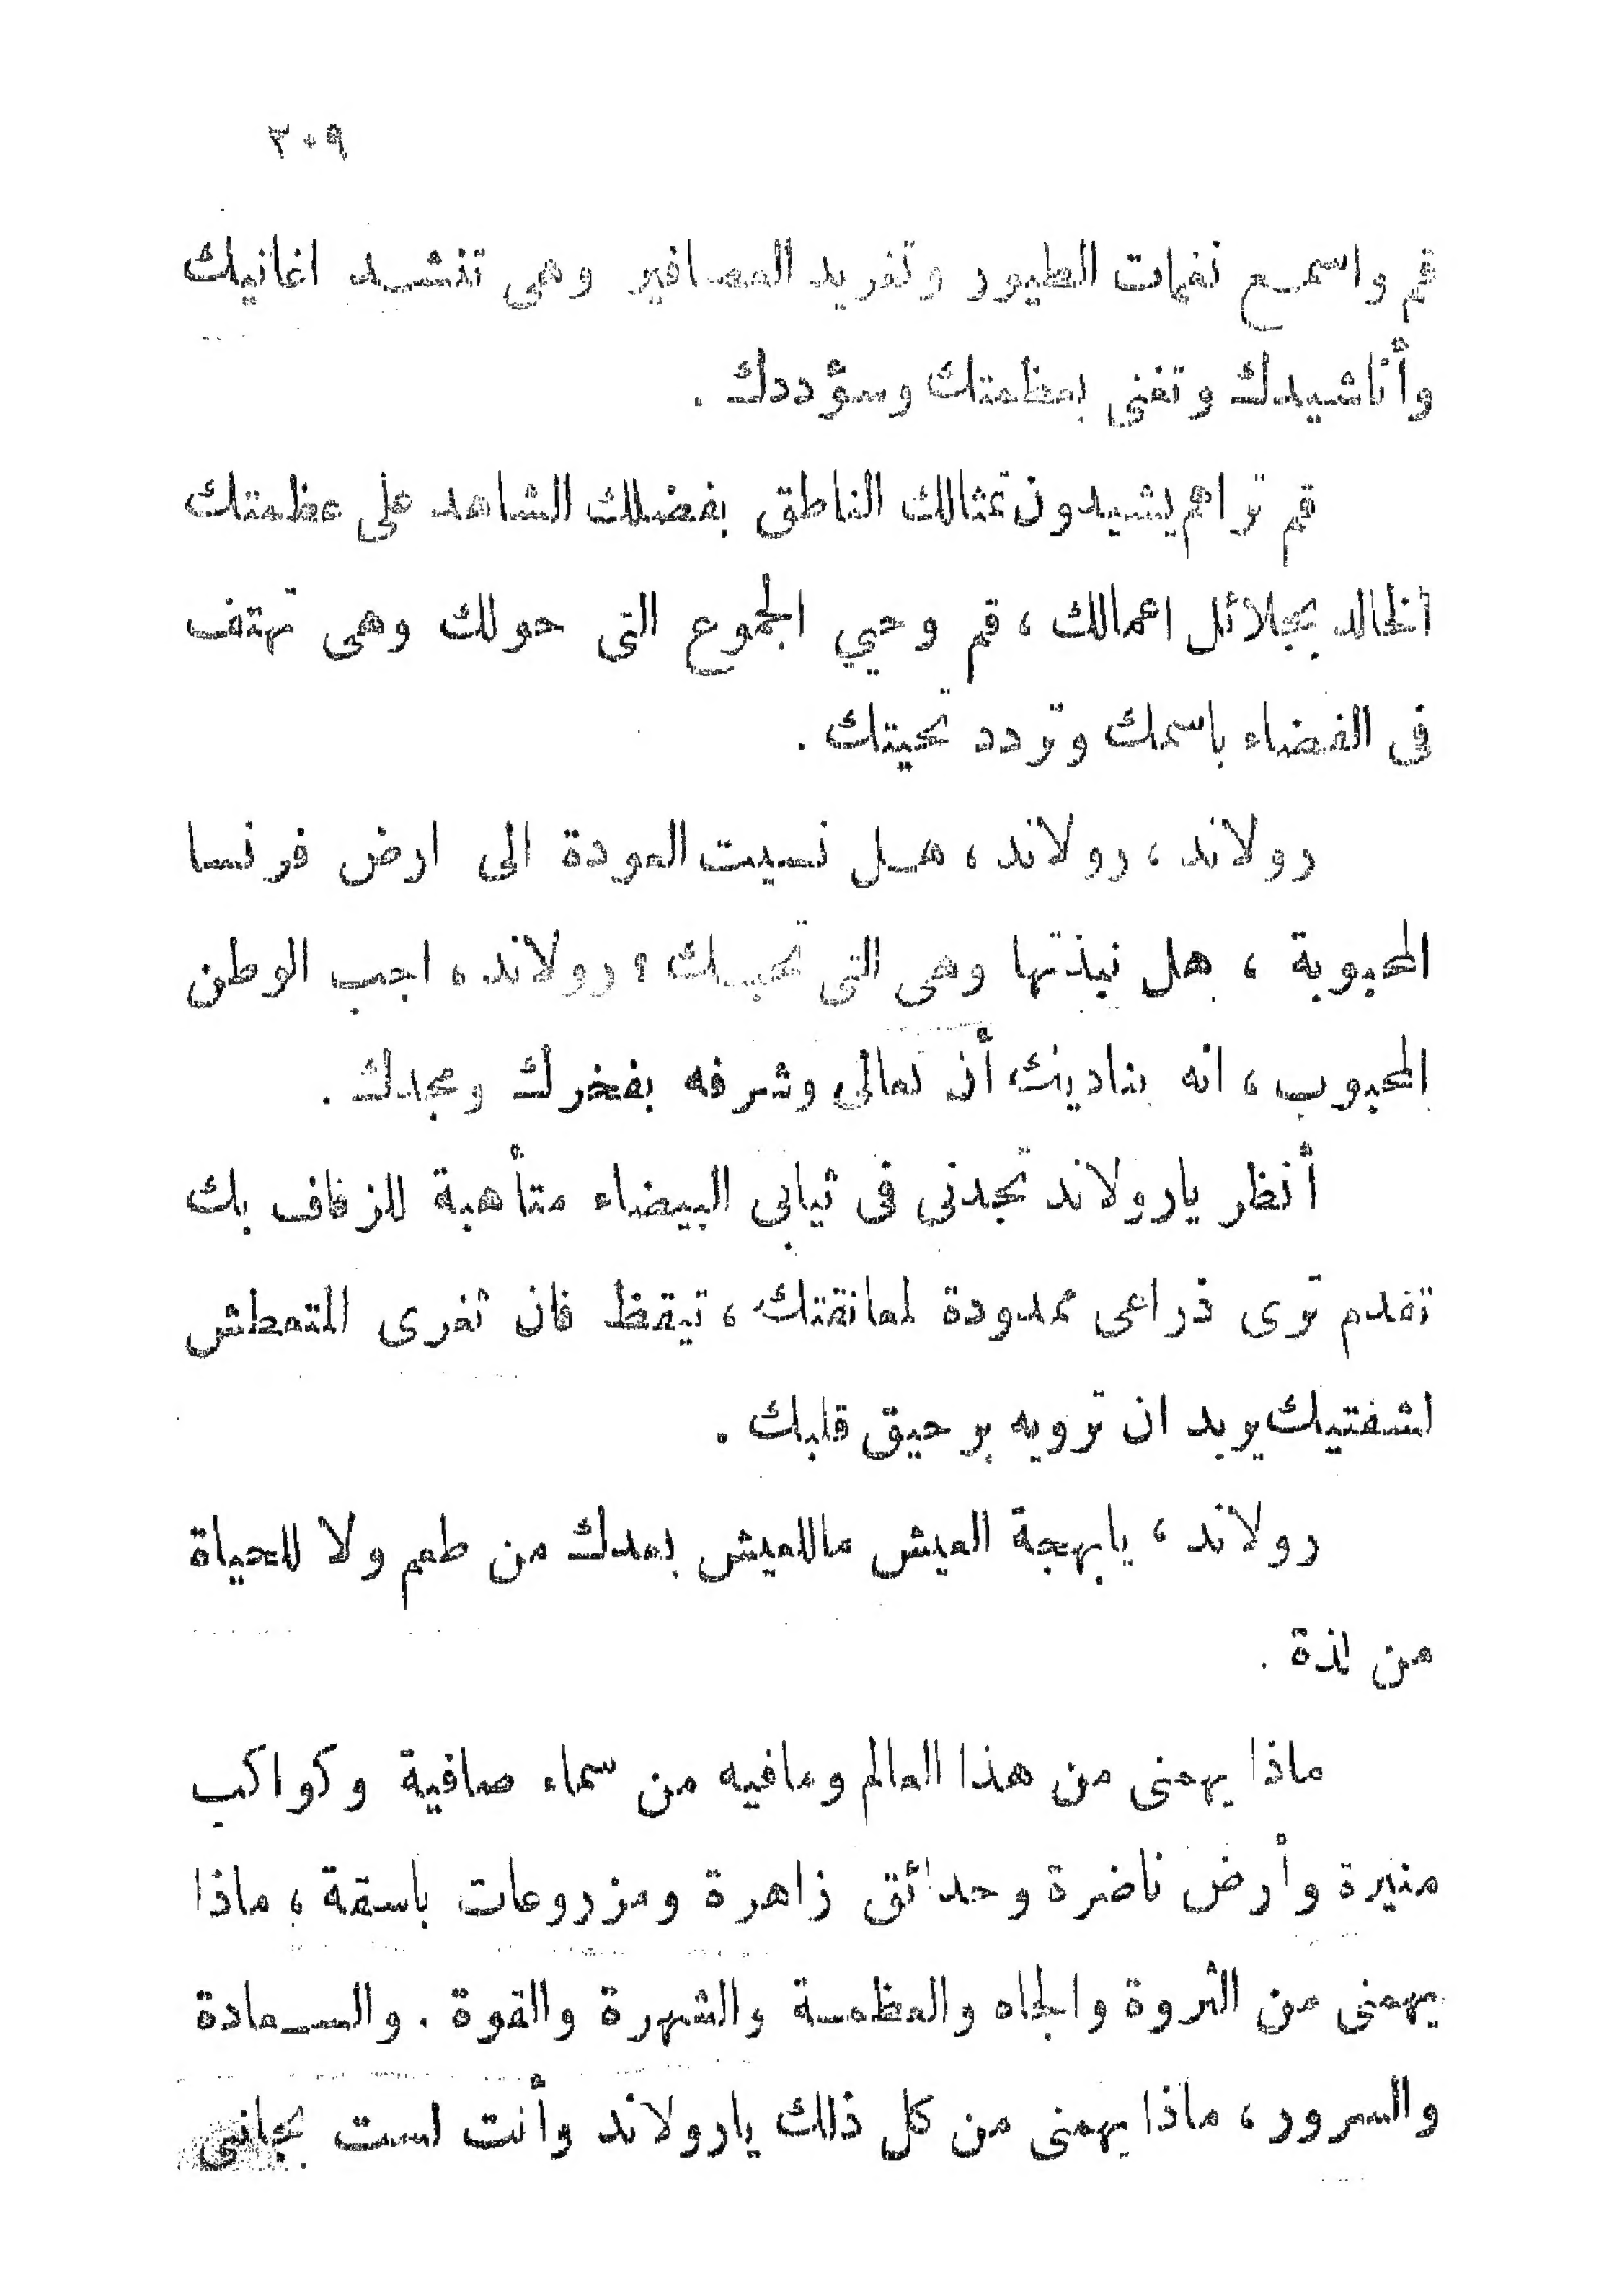 ٢٠٩
قم واسمع نغمات الطيور وتغريد العصافير وهى تنشد اغانيك
وأناشيدك وتغنى بعظمتك وسؤددك .
قم تراهم يشيدون تمثالك الناطق بفضلك الشاهد على عظمتك
الخالد بجلائل اعمالك ، قم وحيي الجموع التى حولك وهى تهتف
فى الفضاء باسمك وتردد تحيتك .
رولاند ، رولاند ، هل نسيت العودة الى ارض فرنسا
المحبوبة ، هل نبذتها وهى التى تحبك ؟ رولاند ، اجب الوطن
المحبوب ، انه يناديك أن تعالى وشرفه بفخرك ومجدك .
أنظر يارولاند تجدنى فى ثيابى البيضاء متأهبة للزفاف بك
تقدم ترى ذراعى ممدودة لمعانقتك ، تيقظ فان ثغرى المتعطش
لشفتيك يريد ان ترويه برحيق قلبك .
رولاند ، يابهجة العيش ماللعيش بعدك من طعم ولا للحياة
من لذة .
ماذا يهمنى من هذا العالم ومافيه من سماء صافية وكواكب
منيرة وأرض ناضرة وحدائق زاهرة ومزروعات باسقة ، ماذا
يهمنى من الثروة والجاه والعظمة والشهرة والقوة . والسعادة
والسرور ، ماذا يهمنى من كل ذلك يارولاند وأنت لست بجانبى